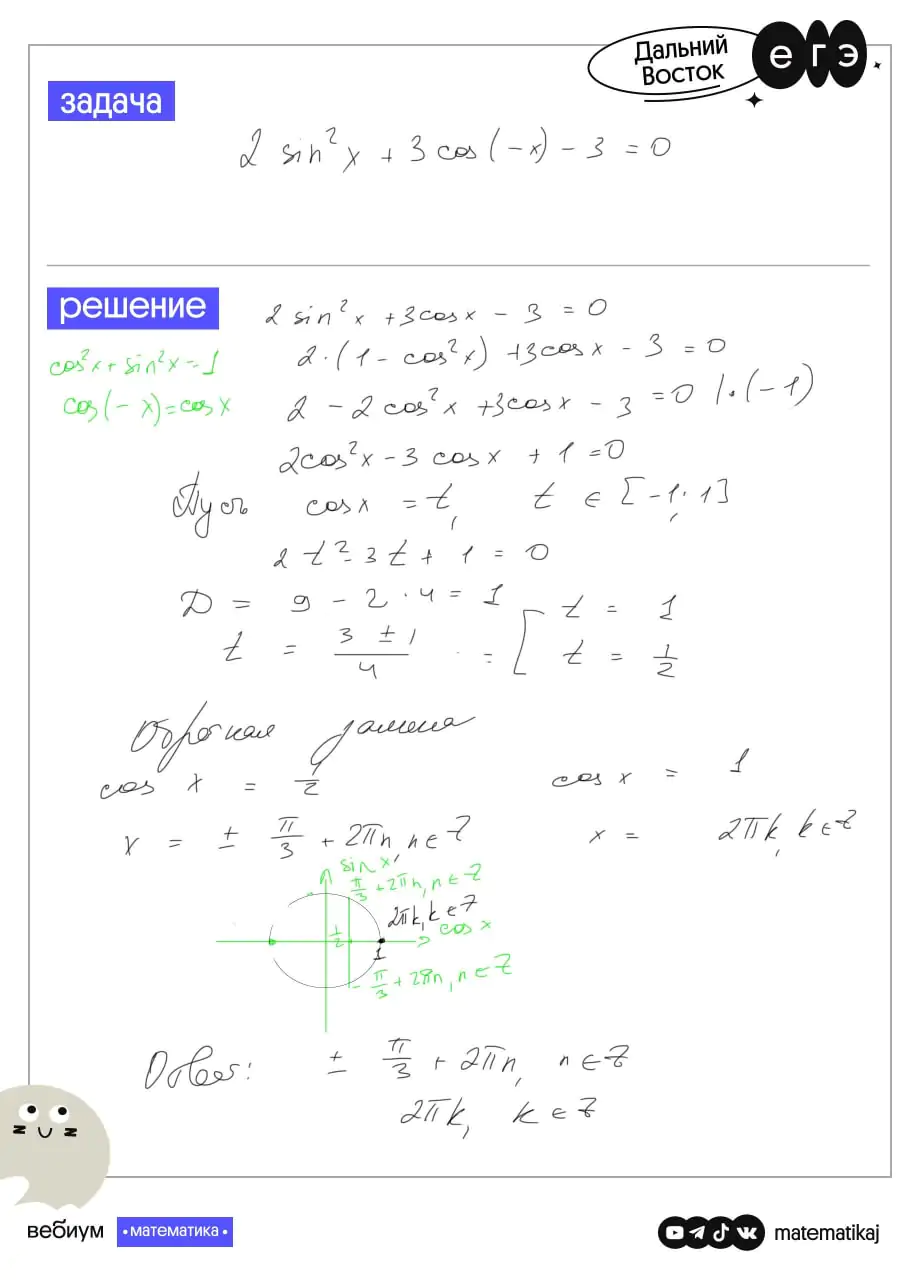 Дальний
Восток
егэ
задача
2 sin²x + 3 cos(-x) - 3 = 0
решение
2 sin²x + 3cosx - 3 = 0
cos²x + sin²x = 1
2·(1 - cos²x) + 3cosx - 3 = 0
cos(-x) = cosx
2 - 2cos²x + 3cosx - 3 = 0 |·(-1)
2cos²x - 3 cosx + 1 = 0
Пусть cosx = t, t ∈ [-1; 1]
2t² - 3t + 1 = 0
D = 9 - 2·4 = 1
t = (3 ± 1)/4 = [ t = 1
t = 1/2
Обратная замена
cos x = 1/2 cos x = 1
x = ± π/3 + 2πn, n ∈ Z x = 2πk, k ∈ Z
sin x
π/3 + 2πn, n ∈ Z
2πk, k ∈ Z
cos x
1/2
1
-π/3 + 2πn, n ∈ Z
Ответ: ± π/3 + 2πn, n ∈ Z
2πk, k ∈ Z
вебиум
• математика •
matematikaj